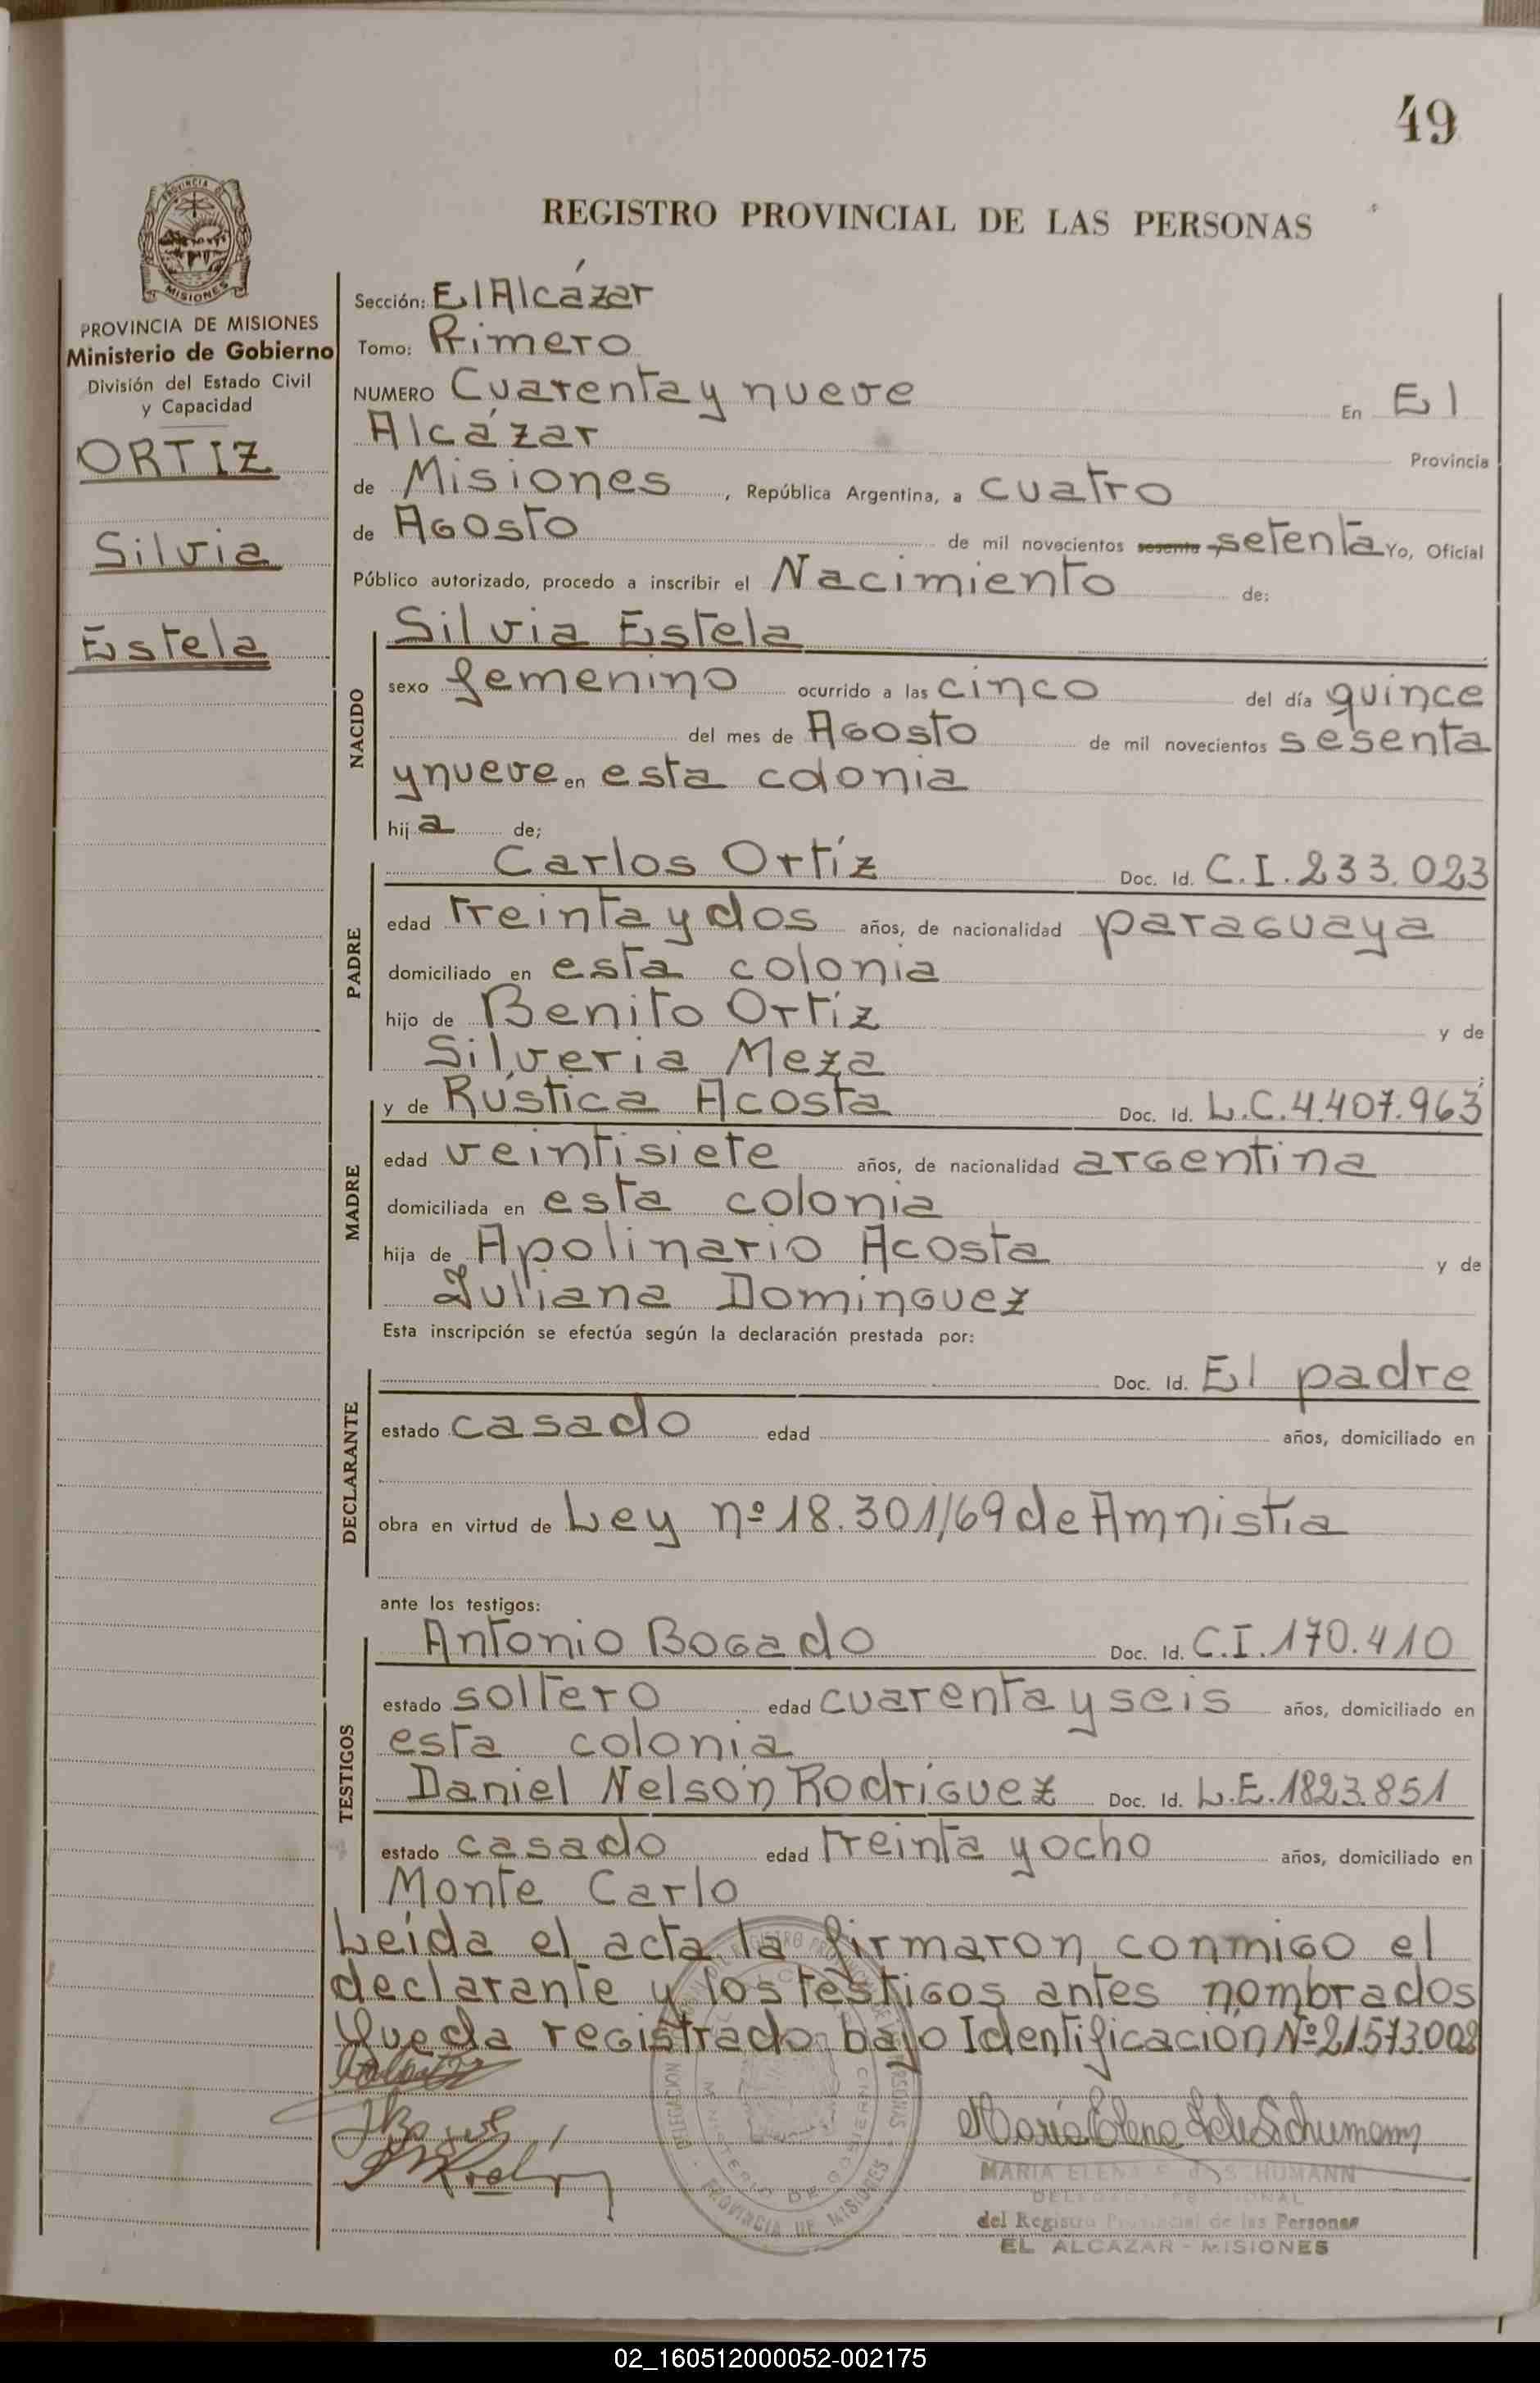 49
REGISTRO PROVINCIAL DE LAS PERSONAS
PROVINCIA DE MISIONES
Ministerio de Gobierno
División del Estado Civil
y Capacidad
ORTIZ
Silvia
Estela
Sección: El Alcázar
Tomo: Primero
NUMERO Cuarenta y nueve En El
Alcázar Provincia
de Misiones, República Argentina, a cuatro
de Agosto de mil novecientos sesenta setenta Yo, Oficial
Público autorizado, procedo a inscribir el Nacimiento de:
NACIDO
Silvia Estela
sexo femenino ocurrido a las cinco del día quince
del mes de Agosto de mil novecientos sesenta
y nueve en esta colonia
hij a de;
PADRE
Carlos Ortíz Doc. Id. C.I. 233.023
edad treinta y dos años, de nacionalidad paraguaya
domiciliado en esta colonia
hijo de Benito Ortíz y de
Silveria Meza
MADRE
y de Rústica Acosta Doc. Id. L.C. 4.407.963
edad veintisiete años, de nacionalidad argentina
domiciliada en esta colonia
hija de Apolinario Acosta y de
Juliana Dominguez
Esta inscripción se efectúa según la declaración prestada por:
DECLARANTE
Doc. Id. El padre
estado casado edad años, domiciliado en
obra en virtud de Ley nº 18.301/69 de Amnistia
ante los testigos:
TESTIGOS
Antonio Bogado Doc. Id. C.I. 170.410
estado soltero edad cuarenta y seis años, domiciliado en
esta colonia
Daniel Nelson Rodríguez Doc. Id. L.E. 1823.851
estado casado edad treinta y ocho años, domiciliado en
Monte Carlo
Leída el acta la firmaron conmigo el
declarante y los testigos antes nombrados
Queda registrado bajo Identificación Nº 21.573.008
PROVINCIA DE MISIONES
MINISTERIO DE GOBIERNO
MARIA ELENA
del Registro Provincial de las Personas
EL ALCAZAR - MISIONES
02_160512000052-002175